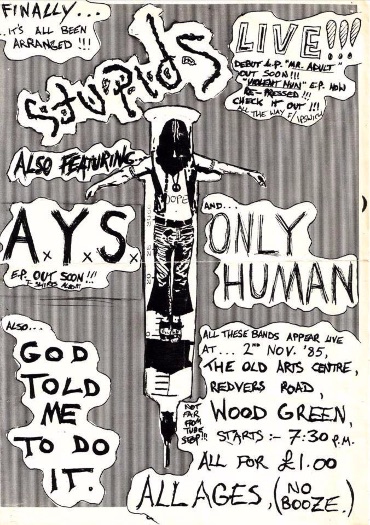 FINALLY...
..IT'S ALL BEEN
ARRANGED !!!
STUPIDS
LIVE!!!
DEBUT L.P. "MR. ADULT"
OUT SOON!!!
"VIOLENT NUN" E.P. NOW
RE-PRESSED!!!
CHECK IT OUT !!!
ALL THE WAY F/ IPSWICH
ALSO FEATURING...
DOPE
A.Y.S.
E.P. OUT SOON!!!
AND...
ONLY
HUMAN
ALSO...
GOD
TOLD
ME
TO DO
IT.
ALL THESE BANDS APPEAR LIVE
AT... 2ND NOV. '85,
THE OLD ARTS CENTRE,
REDVERS ROAD,
WOOD GREEN,
NOT
FAR
FROM
TUBE
STOP!!!
STARTS :- 7:30 P.M.
ALL FOR £1.00
ALL AGES, (NO BOOZE.)